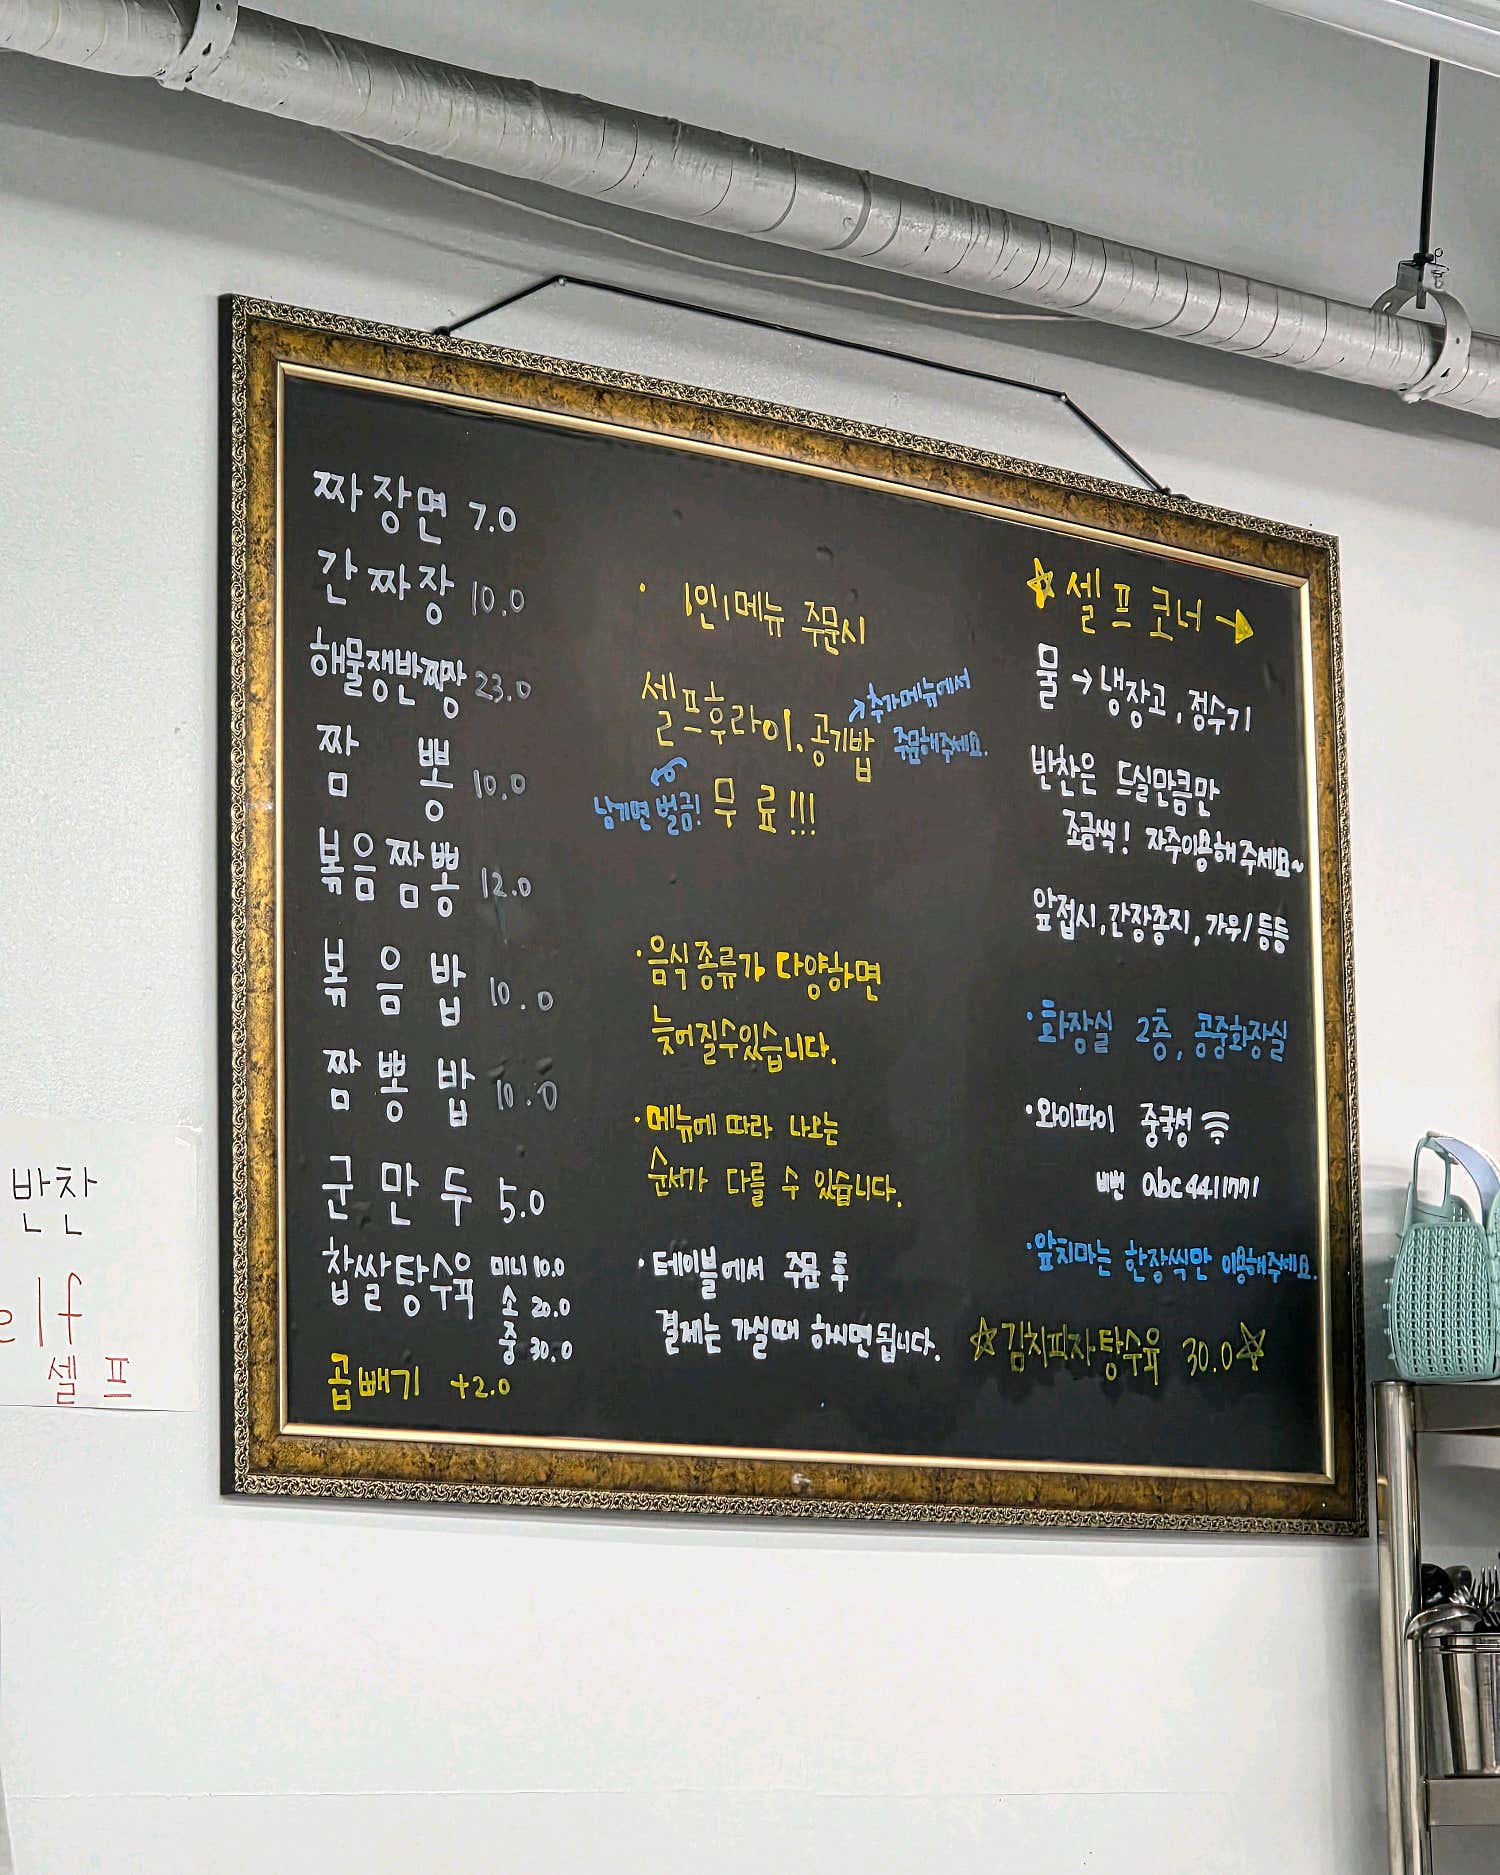 짜장면 7.0
간짜장 10.0
해물쟁반짜장 23.0
짬뽕 10.0
볶음짬뽕 12.0
볶음밥 10.0
짬뽕밥 10.0
군만두 5.0
찹쌀탕수육 미니 10.0
소 20.0
중 30.0
곱빼기 +2.0
· 1인 1메뉴 주문시
셀프후라이, 공기밥
→추가메뉴에서
주문해주세요.
남기면 벌금! 무료!!!
· 음식 종류가 다양하면
늦어질수있습니다.
· 메뉴에 따라 나오는
순서가 다를 수 있습니다.
· 테이블에서 주문 후
결제는 가실때 하시면됩니다.
☆ 셀프 코너 →
물 → 냉장고, 정수기
반찬은 드실만큼만
조금씩! 자주이용해주세요~
앞접시, 간장종지, 가위 / 등등
· 화장실 2층, 공중화장실
· 와이파이 중국성
비번 abc4411771
· 앞치마는 한장씩만 이용해주세요.
☆김치피자탕수육 30.0☆
반찬
ㄴㄴ
elf
셀프